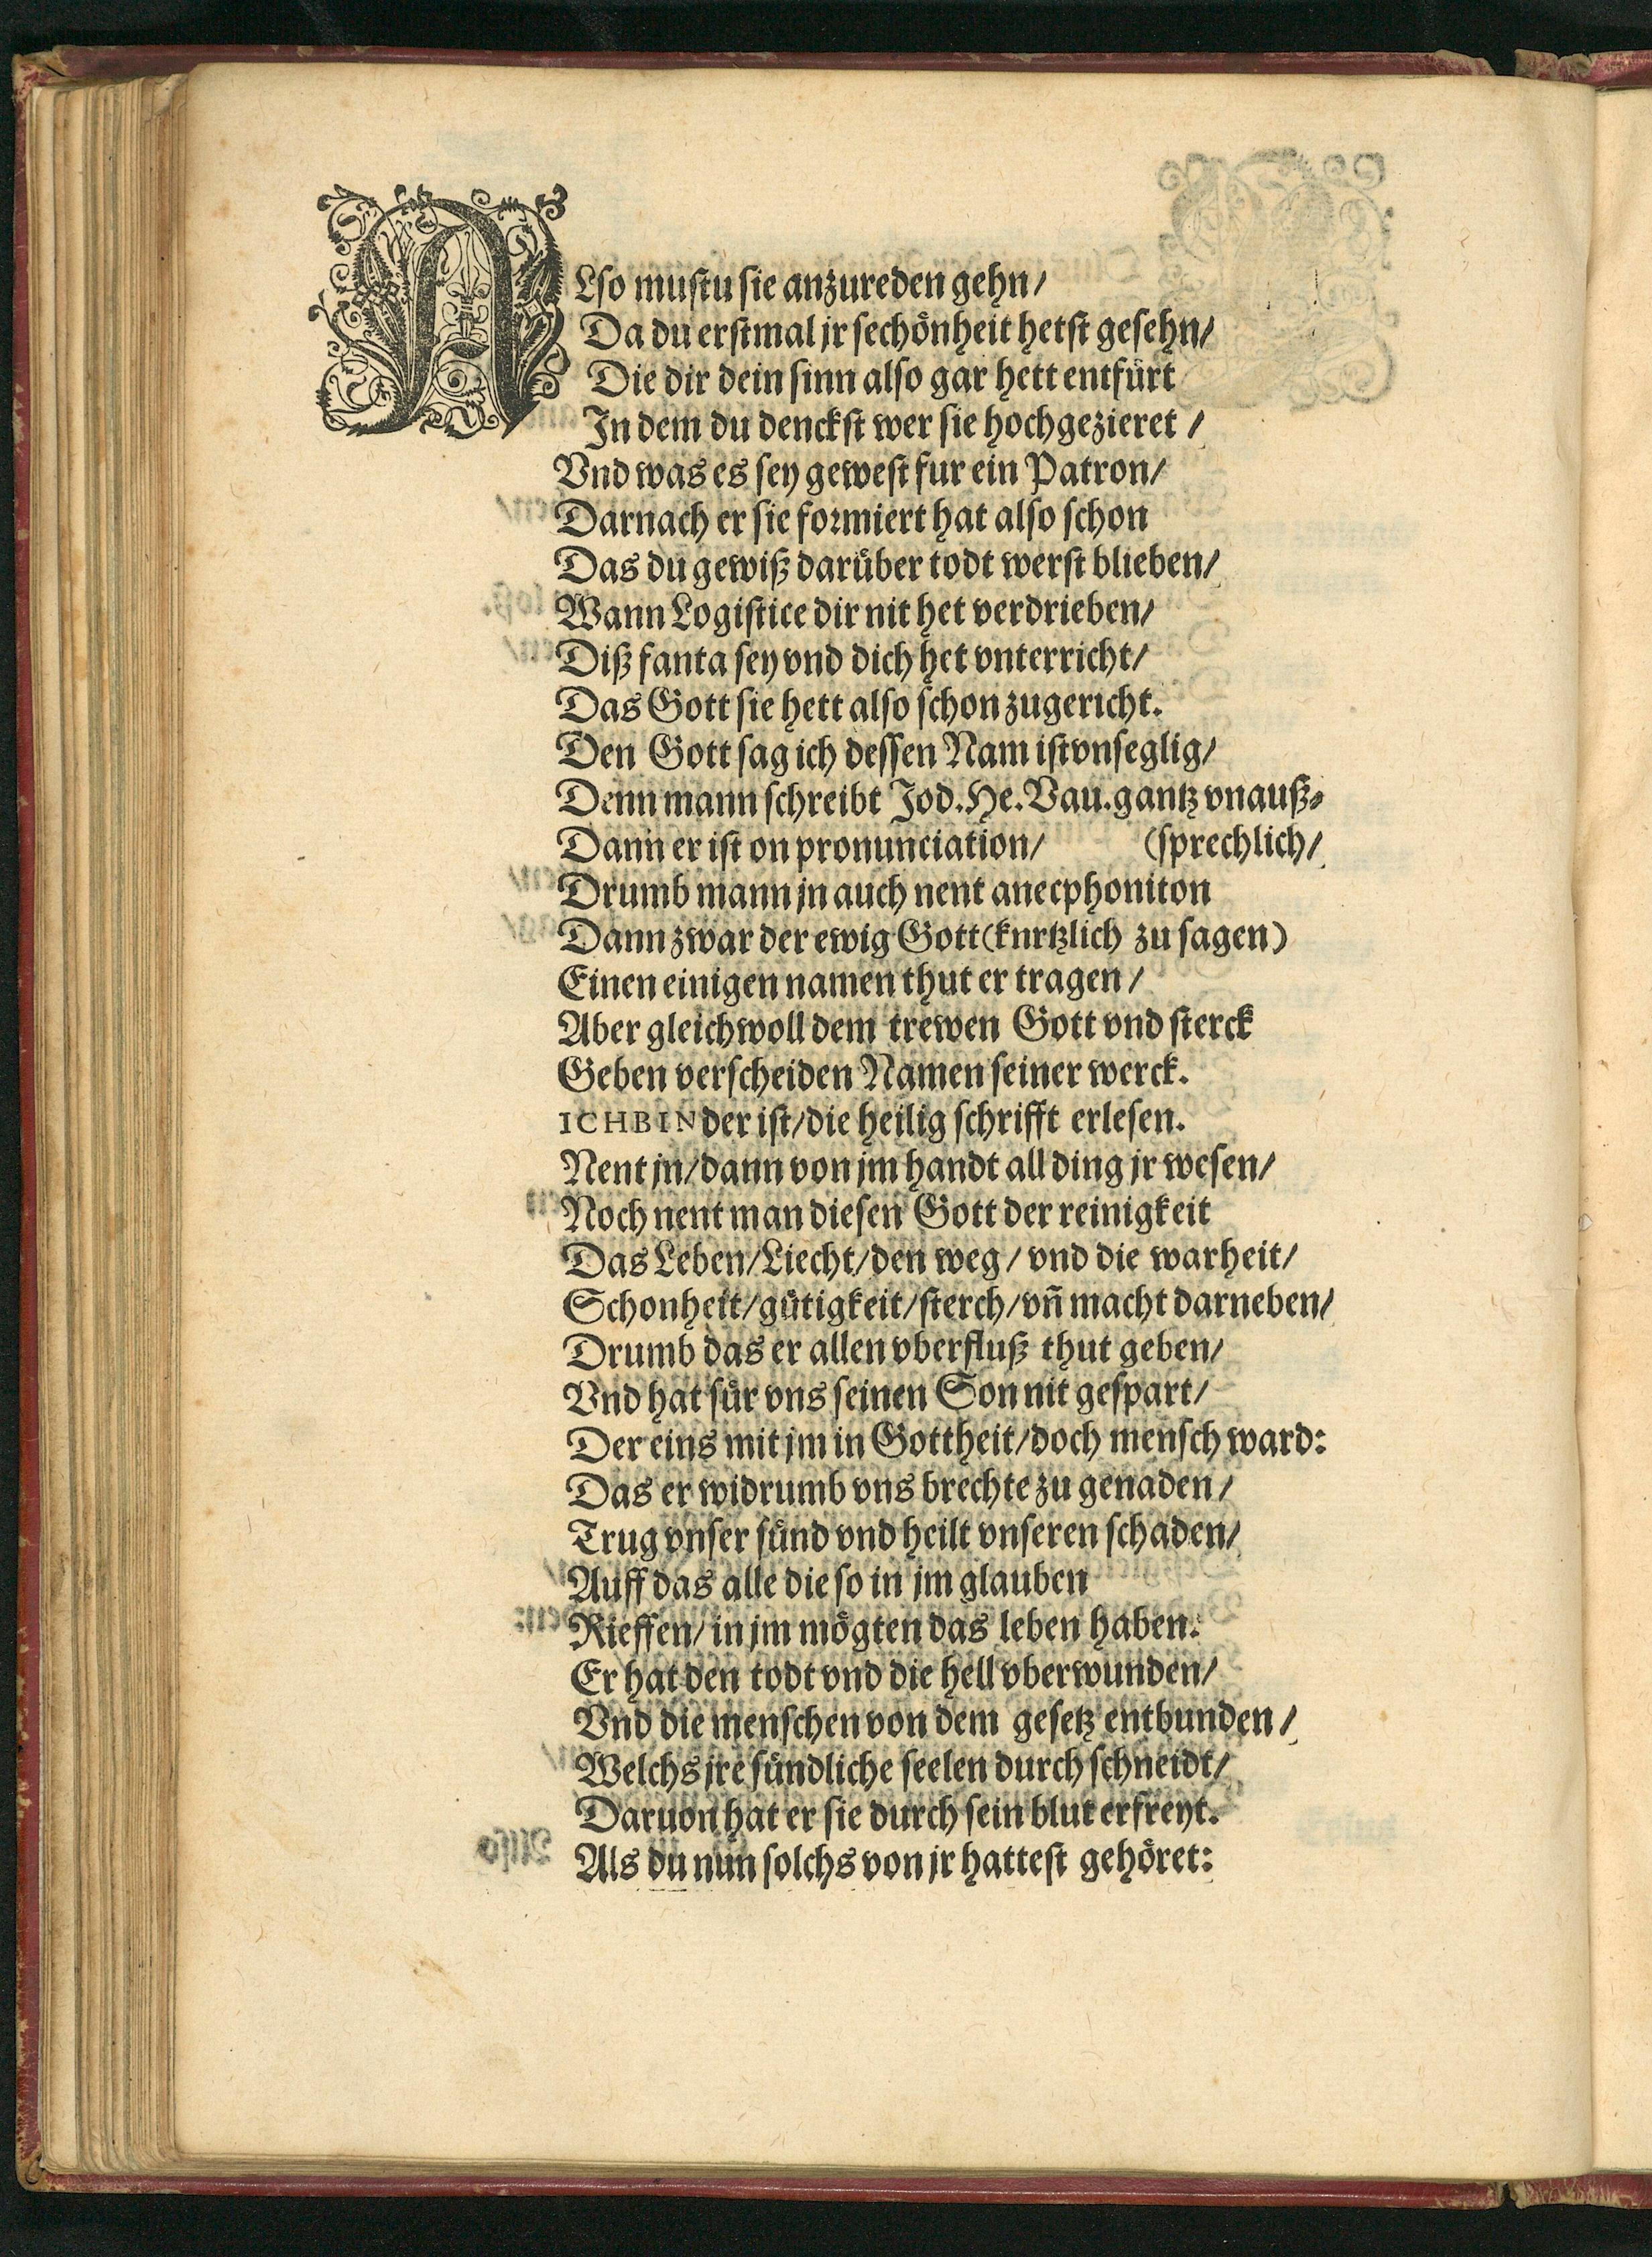 ALso mustu sie anzureden gehn/
Da du erstmal jr sechönheit hetst gesehn/
Die dir dein sinn also gar hett entfürt
In dem du denckst wer sie hochgezieret /
Vnd was es sey gewest fur ein Patron/
Darnach er sie formiert hat also schon
Das du gewiß darüber todt werst blieben/
Wann Logistice dir nit het verdrieben/
Diß fanta sey vnd dich het vnterricht/
Das Gott sie hett also schon zugericht.
Den Gott sag ich dessen Nam ist vnseglig/
Denn mann schreibt Jod. He. Vau. gantz vnauß-
Dann er ist on pronunciation/ (sprechlich/
Drumb mann jn auch nent anecphoniton
Dann zwar der ewig Gott (knrtzlich zu sagen)
Einen einigen namen thut er tragen /
Aber gleichwoll dem trewen Gott vnd sterck
Geben verscheiden Namen seiner werck.
ICH BIN der ist/die heilig schrifft erlesen.
Nent jn/dann von jm handt all ding jr wesen/
Noch nent man diesen Gott der reinigkeit
Das Leben/Liecht/den weg/ vnd die warheit/
Schonheit/gütigkeit/sterch/vñ macht darneben/
Drumb das er allen vberfluß thut geben/
Vnd hat für vns seinen Son nit gespart/
Der eins mit jm in Gottheit/doch mensch ward:
Das er widrumb vns brechte zu genaden/
Trug vnser sünd vnd heilt vnseren schaden/
Auff das alle die so in jm glauben
Rieffen/ in jm mögten das leben haben.
Er hat den todt vnd die hell vberwunden/
Vnd die menschen von dem gesetz entbunden/
Welchs jre sündliche seelen durch schneidt/
Daruon hat er sie durch sein blut erfreyt.
Als du nun solchs von jr hattest gehöret: